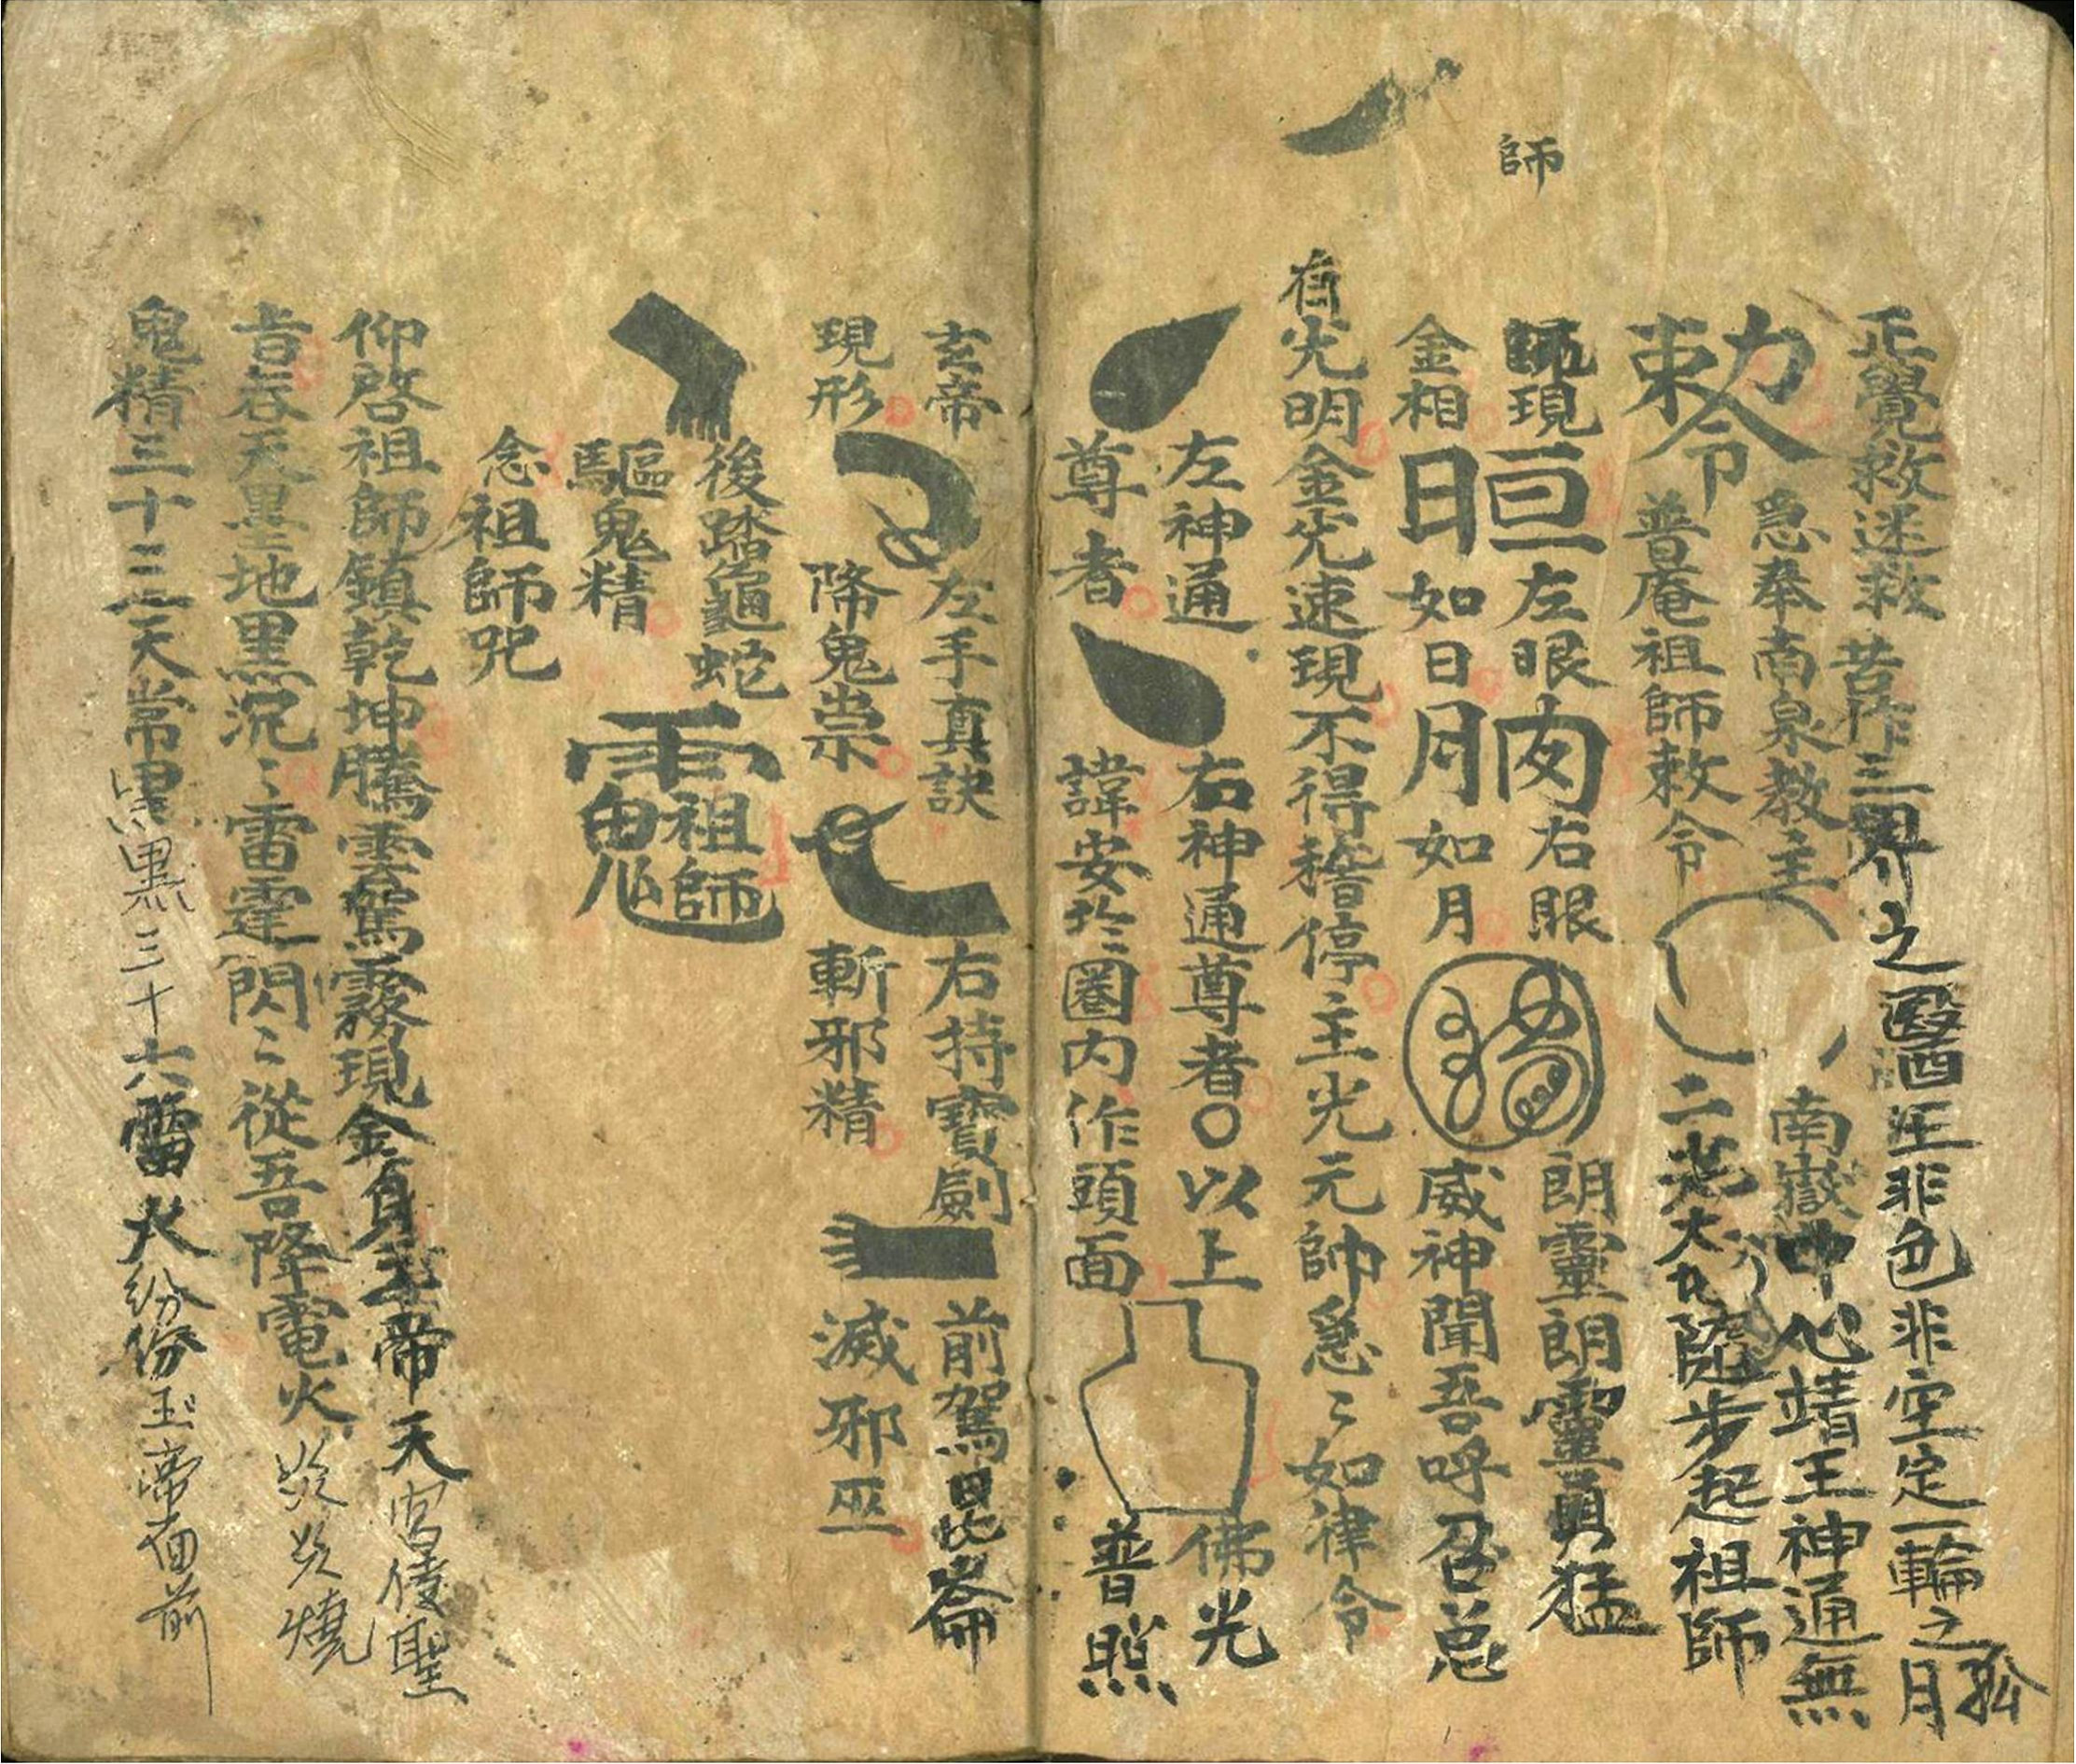 師
正覺救迷救苦作三界之醫王非色非空定一輪之孤月
勅令
急奉南泉教主
普庵祖師敕令
南嶽中心靖王神通無
二 大 隨步起祖師
師現
金相
左眼
日如日
右眼
月如月
朗靈朗靈勇猛
威神聞吾呼召急
有光明金光速現不得稽停主光元帥急〻如律令
左神通
尊者
右神通尊者〇以上
諱安於圈內作頭面
佛光
普照
玄帝
現形
左手真訣
降鬼祟
右持寶劍
斬邪精
前駕昆崙
滅邪巫
後踏龜蛇
驅鬼精
祖師
念祖師咒
仰啓祖師鎮乾坤騰雲駕霧現金身玉帝天宮 聖
吞天黑地黑沉〻雷霆閃〻從吾降電火炎炎燒
鬼精三十三天常黑黑三十六雷火紛份玉帝面前